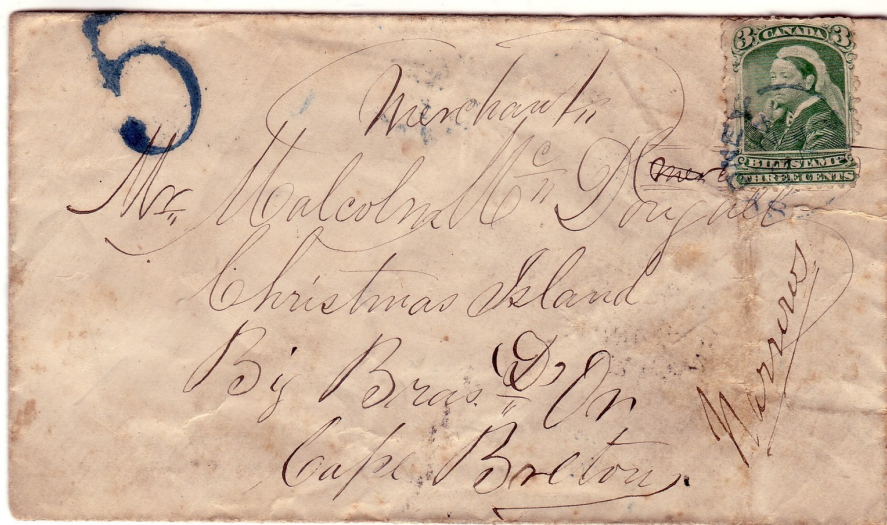 5
3 CANADA 3
BILL STAMP
THREE CENTS
Merchant
Mr Malcolm Mc Dougall
Christmas Island
Big Bras D' Or
Cape Breton.
Narrows